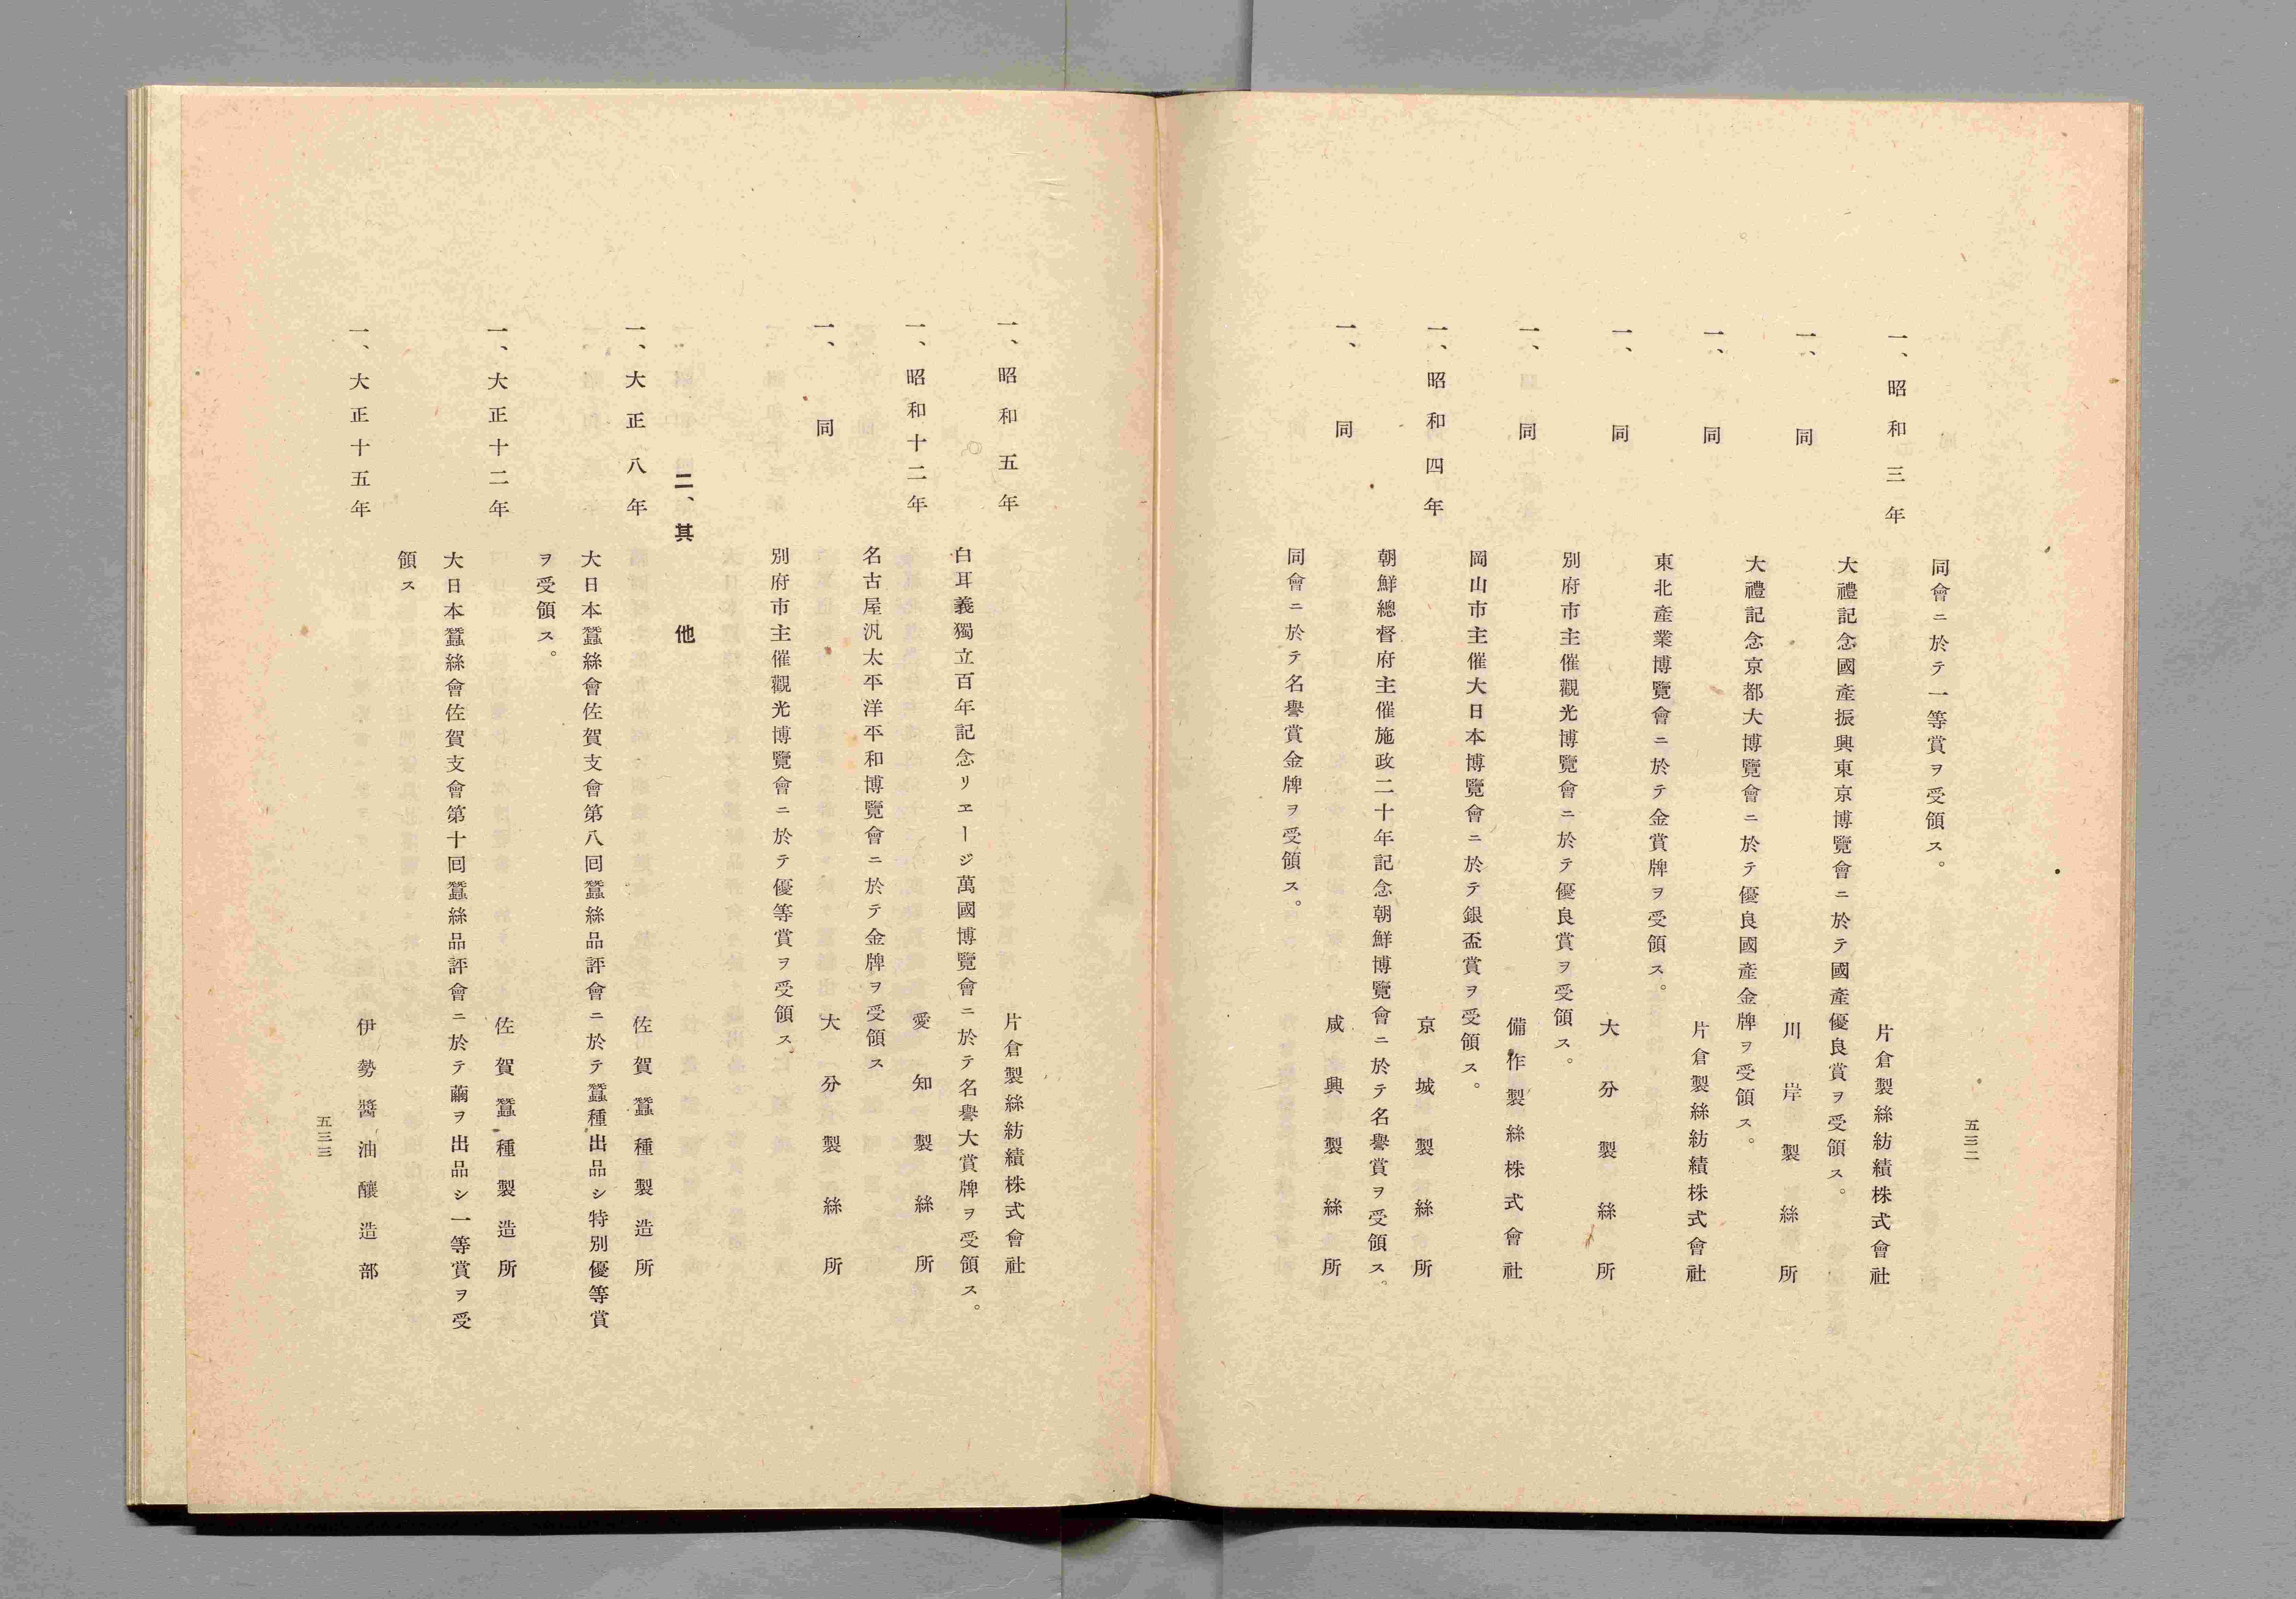 同會ニ於テ一等賞ヲ受領ス。
一、昭和三年 片倉製絲紡績株式會社
大禮記念國產振興東京博覽會ニ於テ國產優良賞ヲ受領ス。
一、同 川岸製絲所
大禮記念京都大博覽會ニ於テ優良國產金牌ヲ受領ス。
一、同 片倉製絲紡績株式會社
東北產業博覽會ニ於テ金賞牌ヲ受領ス。
一、同 大分製絲所
別府市主催觀光博覽會ニ於テ優良賞ヲ受領ス。
一、同 備作製絲株式會社
岡山市主催大日本博覽會ニ於テ銀盃賞ヲ受領ス。
一、昭和四年 京城製絲所
朝鮮總督府主催施政二十年記念朝鮮博覽會ニ於テ名譽賞ヲ受領ス。
一、同 咸興製絲所
同會ニ於テ名譽賞金牌ヲ受領ス。
五三二
一、昭和五年 片倉製絲紡績株式會社
白耳義獨立百年記念リエージ萬國博覽會ニ於テ名譽大賞牌ヲ受領ス。
一、昭和十二年 愛知製絲所
名古屋汎太平洋平和博覽會ニ於テ金牌ヲ受領ス
一、同 大分製絲所
別府市主催觀光博覽會ニ於テ優等賞ヲ受領ス。
二、其他
一、大正八年 佐賀蠶種製造所
大日本蠶絲會佐賀支會第八囘蠶絲品評會ニ於テ蠶種出品シ特別優等賞
ヲ受領ス。
一、大正十二年 佐賀蠶種製造所
大日本蠶絲會佐賀支會第十囘蠶絲品評會ニ於テ繭ヲ出品シ一等賞ヲ受
領ス
一、大正十五年 伊勢醬油釀造部
五三三